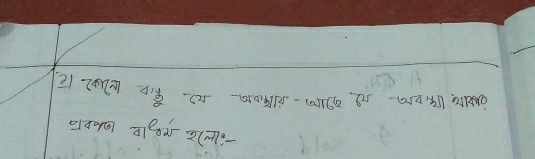 ২। কোনো বস্তু যে অবস্থায় - আছে সে - অবস্থা থাকার
প্রবণতা বা ধর্ম হলো:-